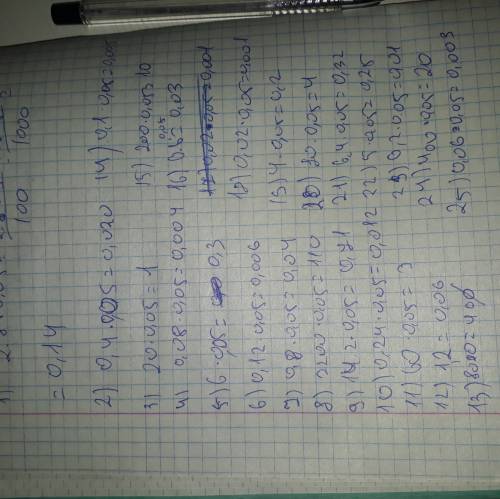 = 0,14
2) 0,4·0,05=0,020
3) 20·0,05=1
4) 0,08·0,05=0,004
5) 6·0,05= 0,3
6) 0,12·0,05=0,006
7) 0,8·0,05=0,04
8) 2200·0,05=110
9) 14,2·0,05=0,71
10) 0,24·0,05=0,012
11) 60·0,05=3
12) 12=0,06
13) 8000=400
14) 0,1·0,05=0,005
15) 200·0,05=10
0,05
16) 0,6=0,03
18) 0,02·0,05=0,001
19) 4·0,05=0,2
20) 80·0,05=4
21) 6,4·0,05=0,32
22) 5·0,05=0,25
23) 0,2·0,05=0,01
24) 400·0,05=20
25) 0,06·0,05=0,003